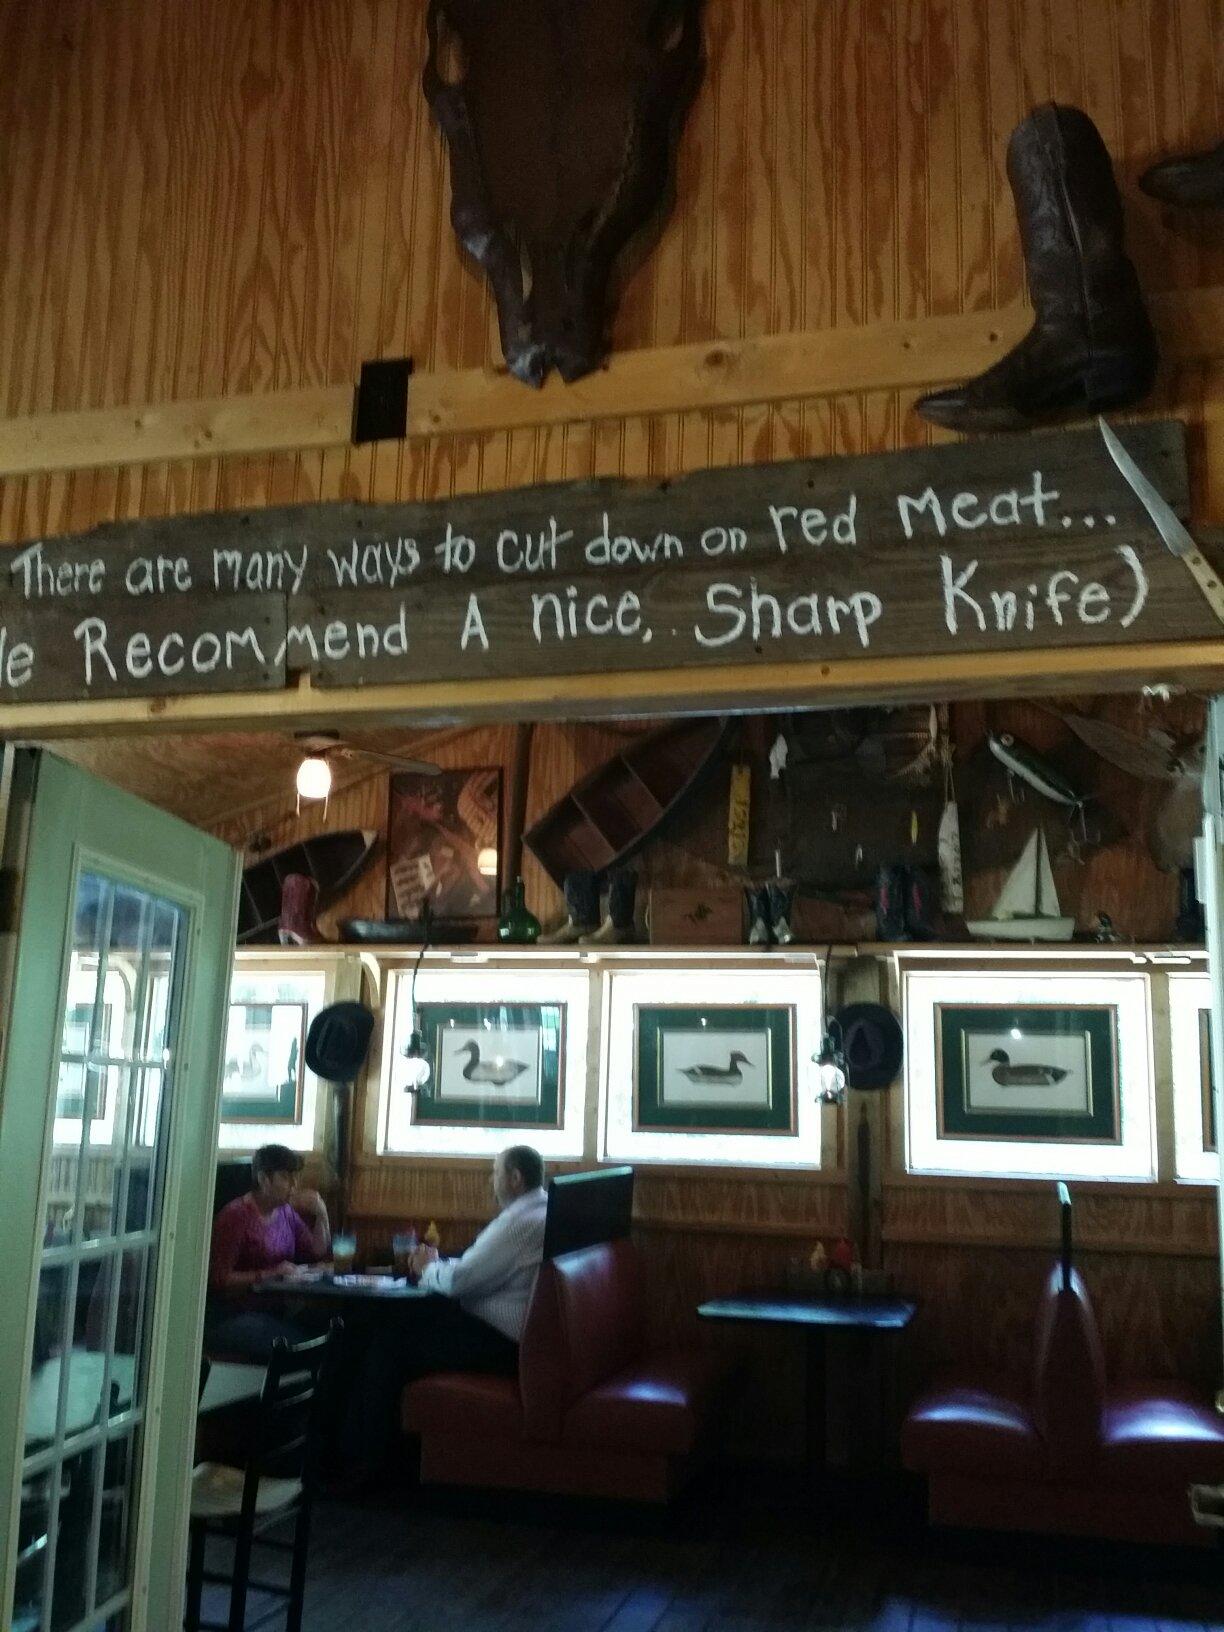 There are many ways to cut down on red Meat...
Recommend A nice, Sharp Knife)